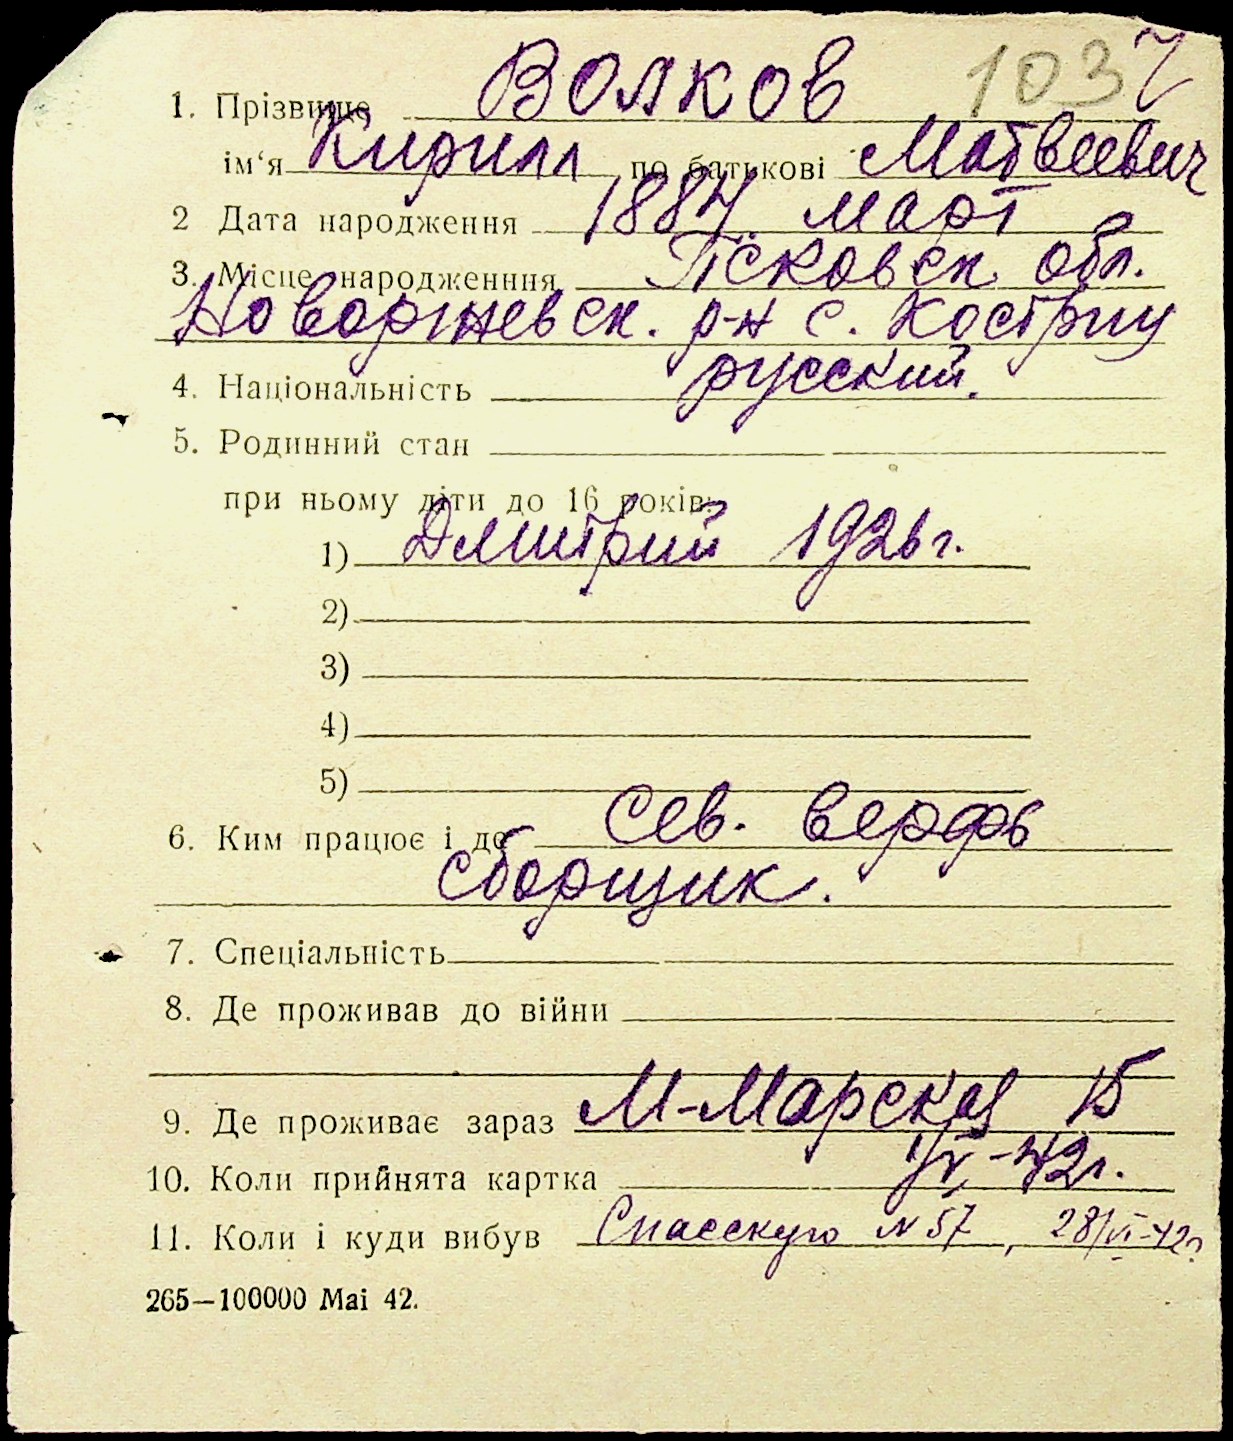 103 7
1. Прізвище Волков
ім'я Кирилл по батькові Матвеевич
2 Дата народження 1884 март
3. Місце народженння Псковск обл.
Новоржевск. р-н с. Кострии
4. Національність русский.
5. Родинний стан
при ньому діти до 16 років:
1) Дмитрий 1926 г.
2)
3)
4)
5)
6. Ким працює і де Сев. верфь
сборщик.
7. Спеціальність
8. Де проживав до війни
9. Де проживає зараз М-Марская 15
10. Коли прийнята картка 1/V-42 г.
11. Коли і куди вибув Спасскую N 57, 28/VI-42 г
265—100000 Маі 42.